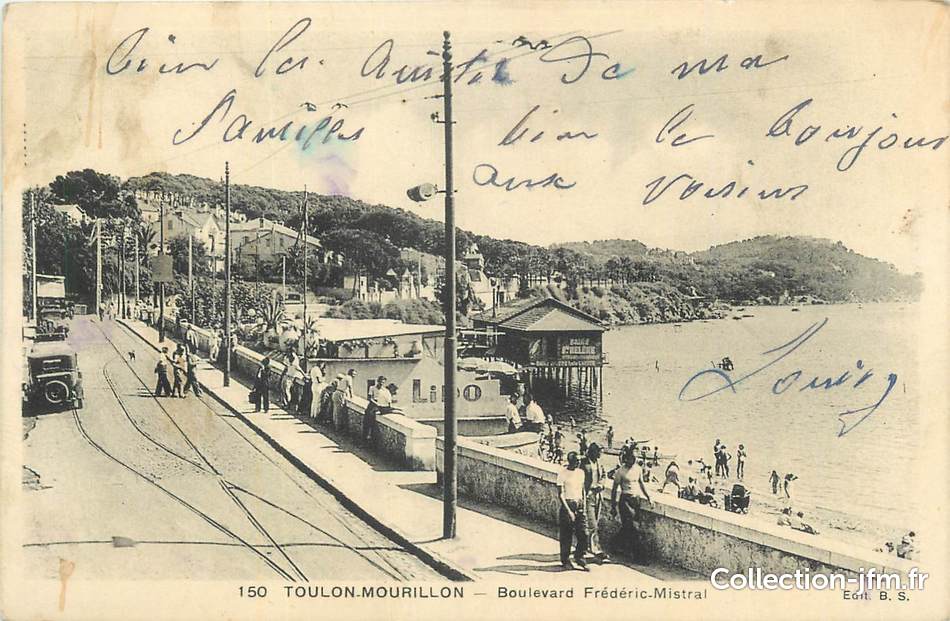 bien les amitiés de ma
famille bien le bonjour
aux voisins
Louis
BAINS
STE HELENE
LIDO
150 TOULON-MOURILLON — Boulevard Frédéric-Mistral
Edit. B. S.
Collection-jfm.fr